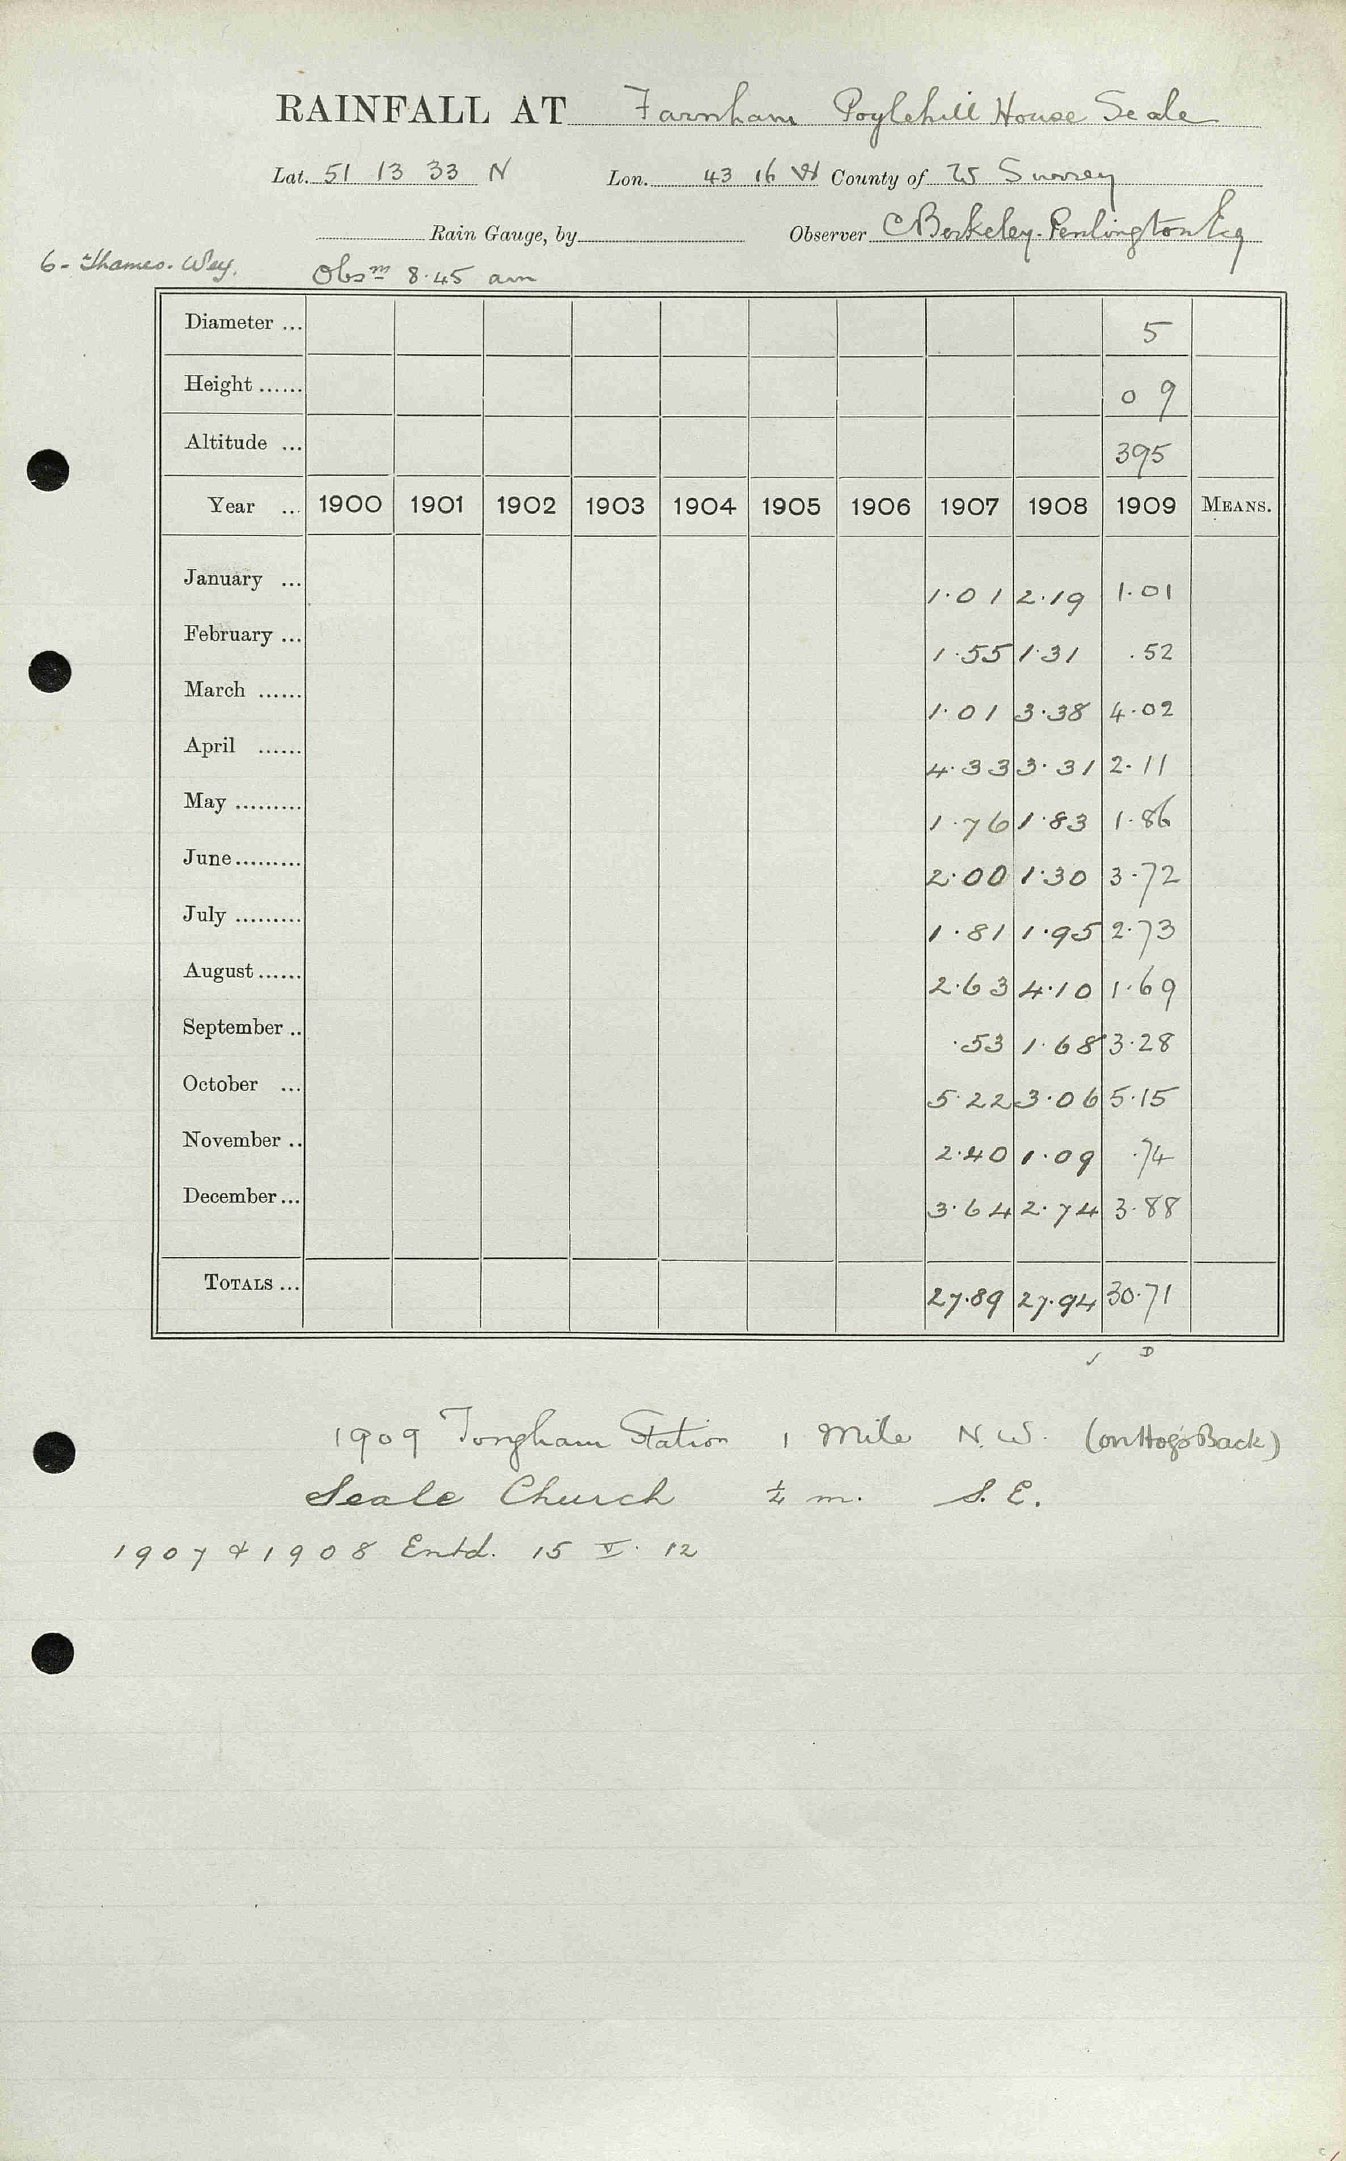 RAINFALL AT Farnham Poylehill House Seale
Lat. 51 13 33 N Lon. 43 16 W County of W Surrey
Rain Gauge, by Observer C Berkeley-Penlington Esq
6 - Thames - Wey. Obsn 8.45 am
Diameter ... 5
Height ...... 0 9
Altitude ... 395
Year ... 1900 1901 1902 1903 1904 1905 1906 1907 1908 1909 MEANS.
January ... 1.01 2.19 1.01
February ... 1.55 1.31 .52
March ...... 1.01 3.38 4.02
April ...... 4.33 3.31 2.11
May ......... 1.76 1.83 1.86
June ......... 2.00 1.30 3.72
July ......... 1.81 1.95 2.73
August ...... 2.63 4.10 1.69
September .. .53 1.68 3.28
October ... 5.22 3.06 5.15
November .. 2.40 1.09 .74
December ... 3.64 2.74 3.88
TOTALS ... 27.89 27.94 30.71
✓ D
1909 Tongham Station 1 Mile N.W. (on Hog's Back)
Seale Church ¼ m. S.E.
1907 & 1908 Entd. 15 V. 12